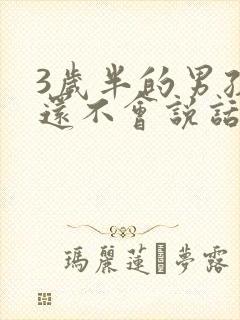 3歲半的男孩
還不會說話
瑪麗蓮 夢露